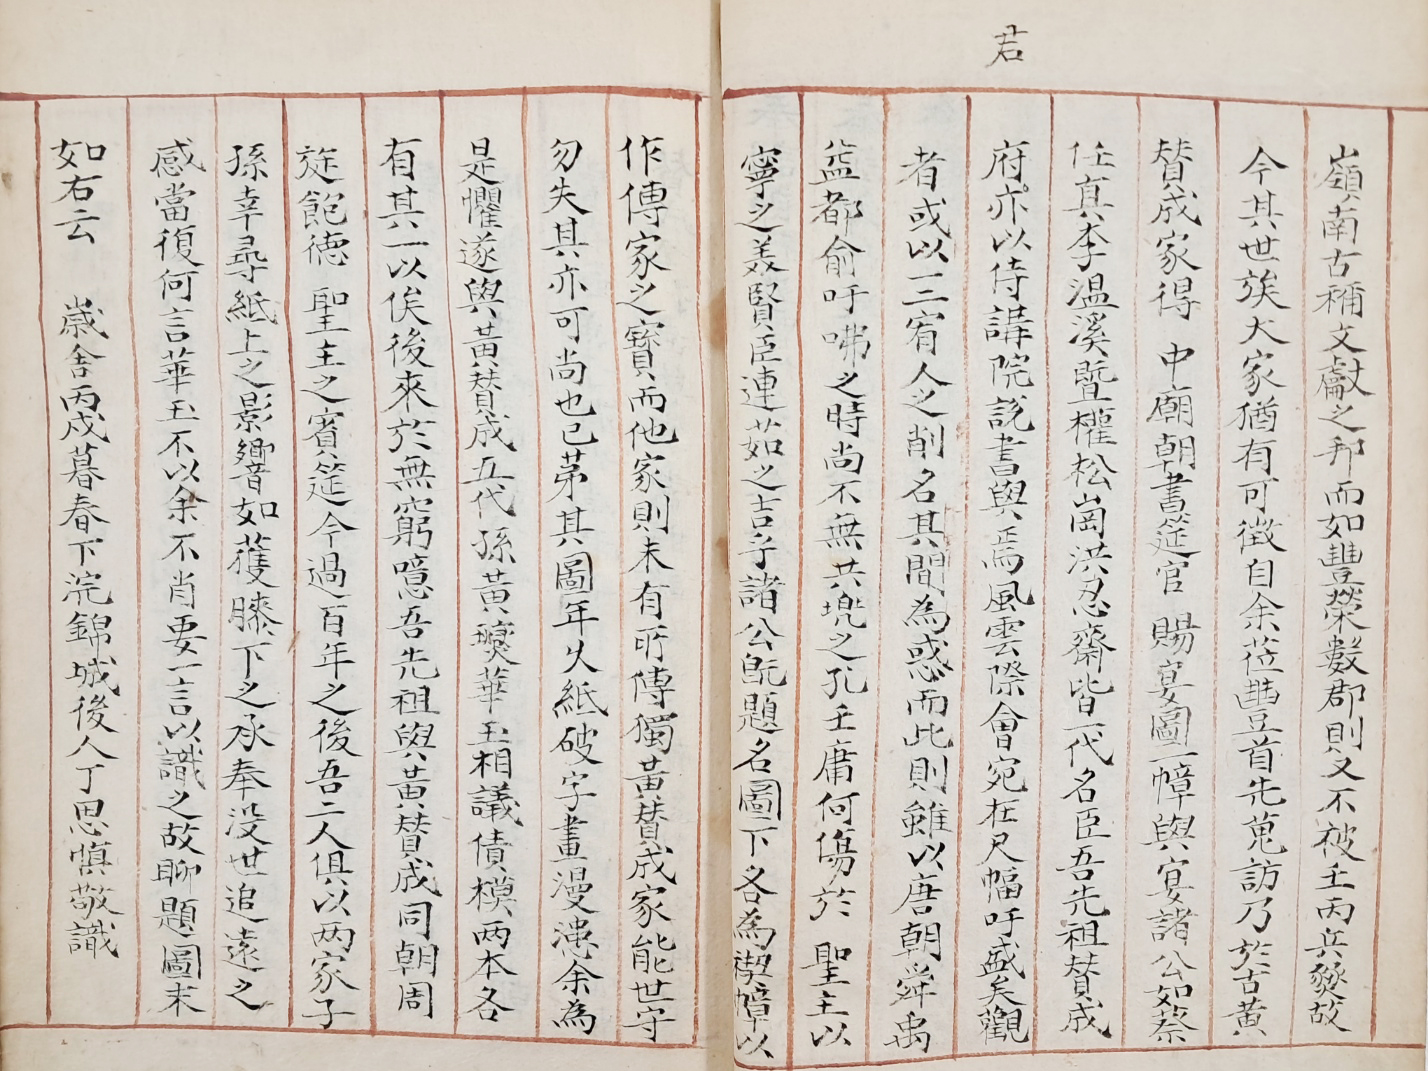 君
嶺南古稱文獻之邦而如豐榮數郡則又不被壬丙兵燹故
今其世族大家猶有可徵自余莅豐首先蒐訪乃於古黃
賛成家得 中廟朝書筵官 賜宴圖一幛與宴諸公如蔡
任真李溫溪曁權松岡洪忍齋皆一代名臣吾先祖賛成
府亦以侍講院說書與焉風雲際會宛在尺幅吁盛矣觀
者或以一二宥人之削名其間為惑而此則雖以唐朝舜禹
益都俞吁咈之時尚不無共兠之孔壬庸何傷於 聖主以
寧之美賢臣連茹之吉乎諸公旣題名圖下各為禊幛以
作傳家之寶而他家則未有所傳獨黃賛成家能世守
勿失其亦可尚也已苐其圖年久紙破字畫漫漶余為
是懼遂與黃賛成五代孫黃瓊華玉相議倩模兩本各
有其一以俟後來於無窮噫吾先祖與黃賛成同朝周
旋飽德 聖主之賓筵今過百年之後吾二人俱以两家子
孫幸尋紙上之影響如獲膝下之承奉没世追遠之
感當復何言華玉不以余不肖要一言以識之故聊題圖末
如右云 歲舍丙戌暮春下浣錦城後人丁思愼敬識